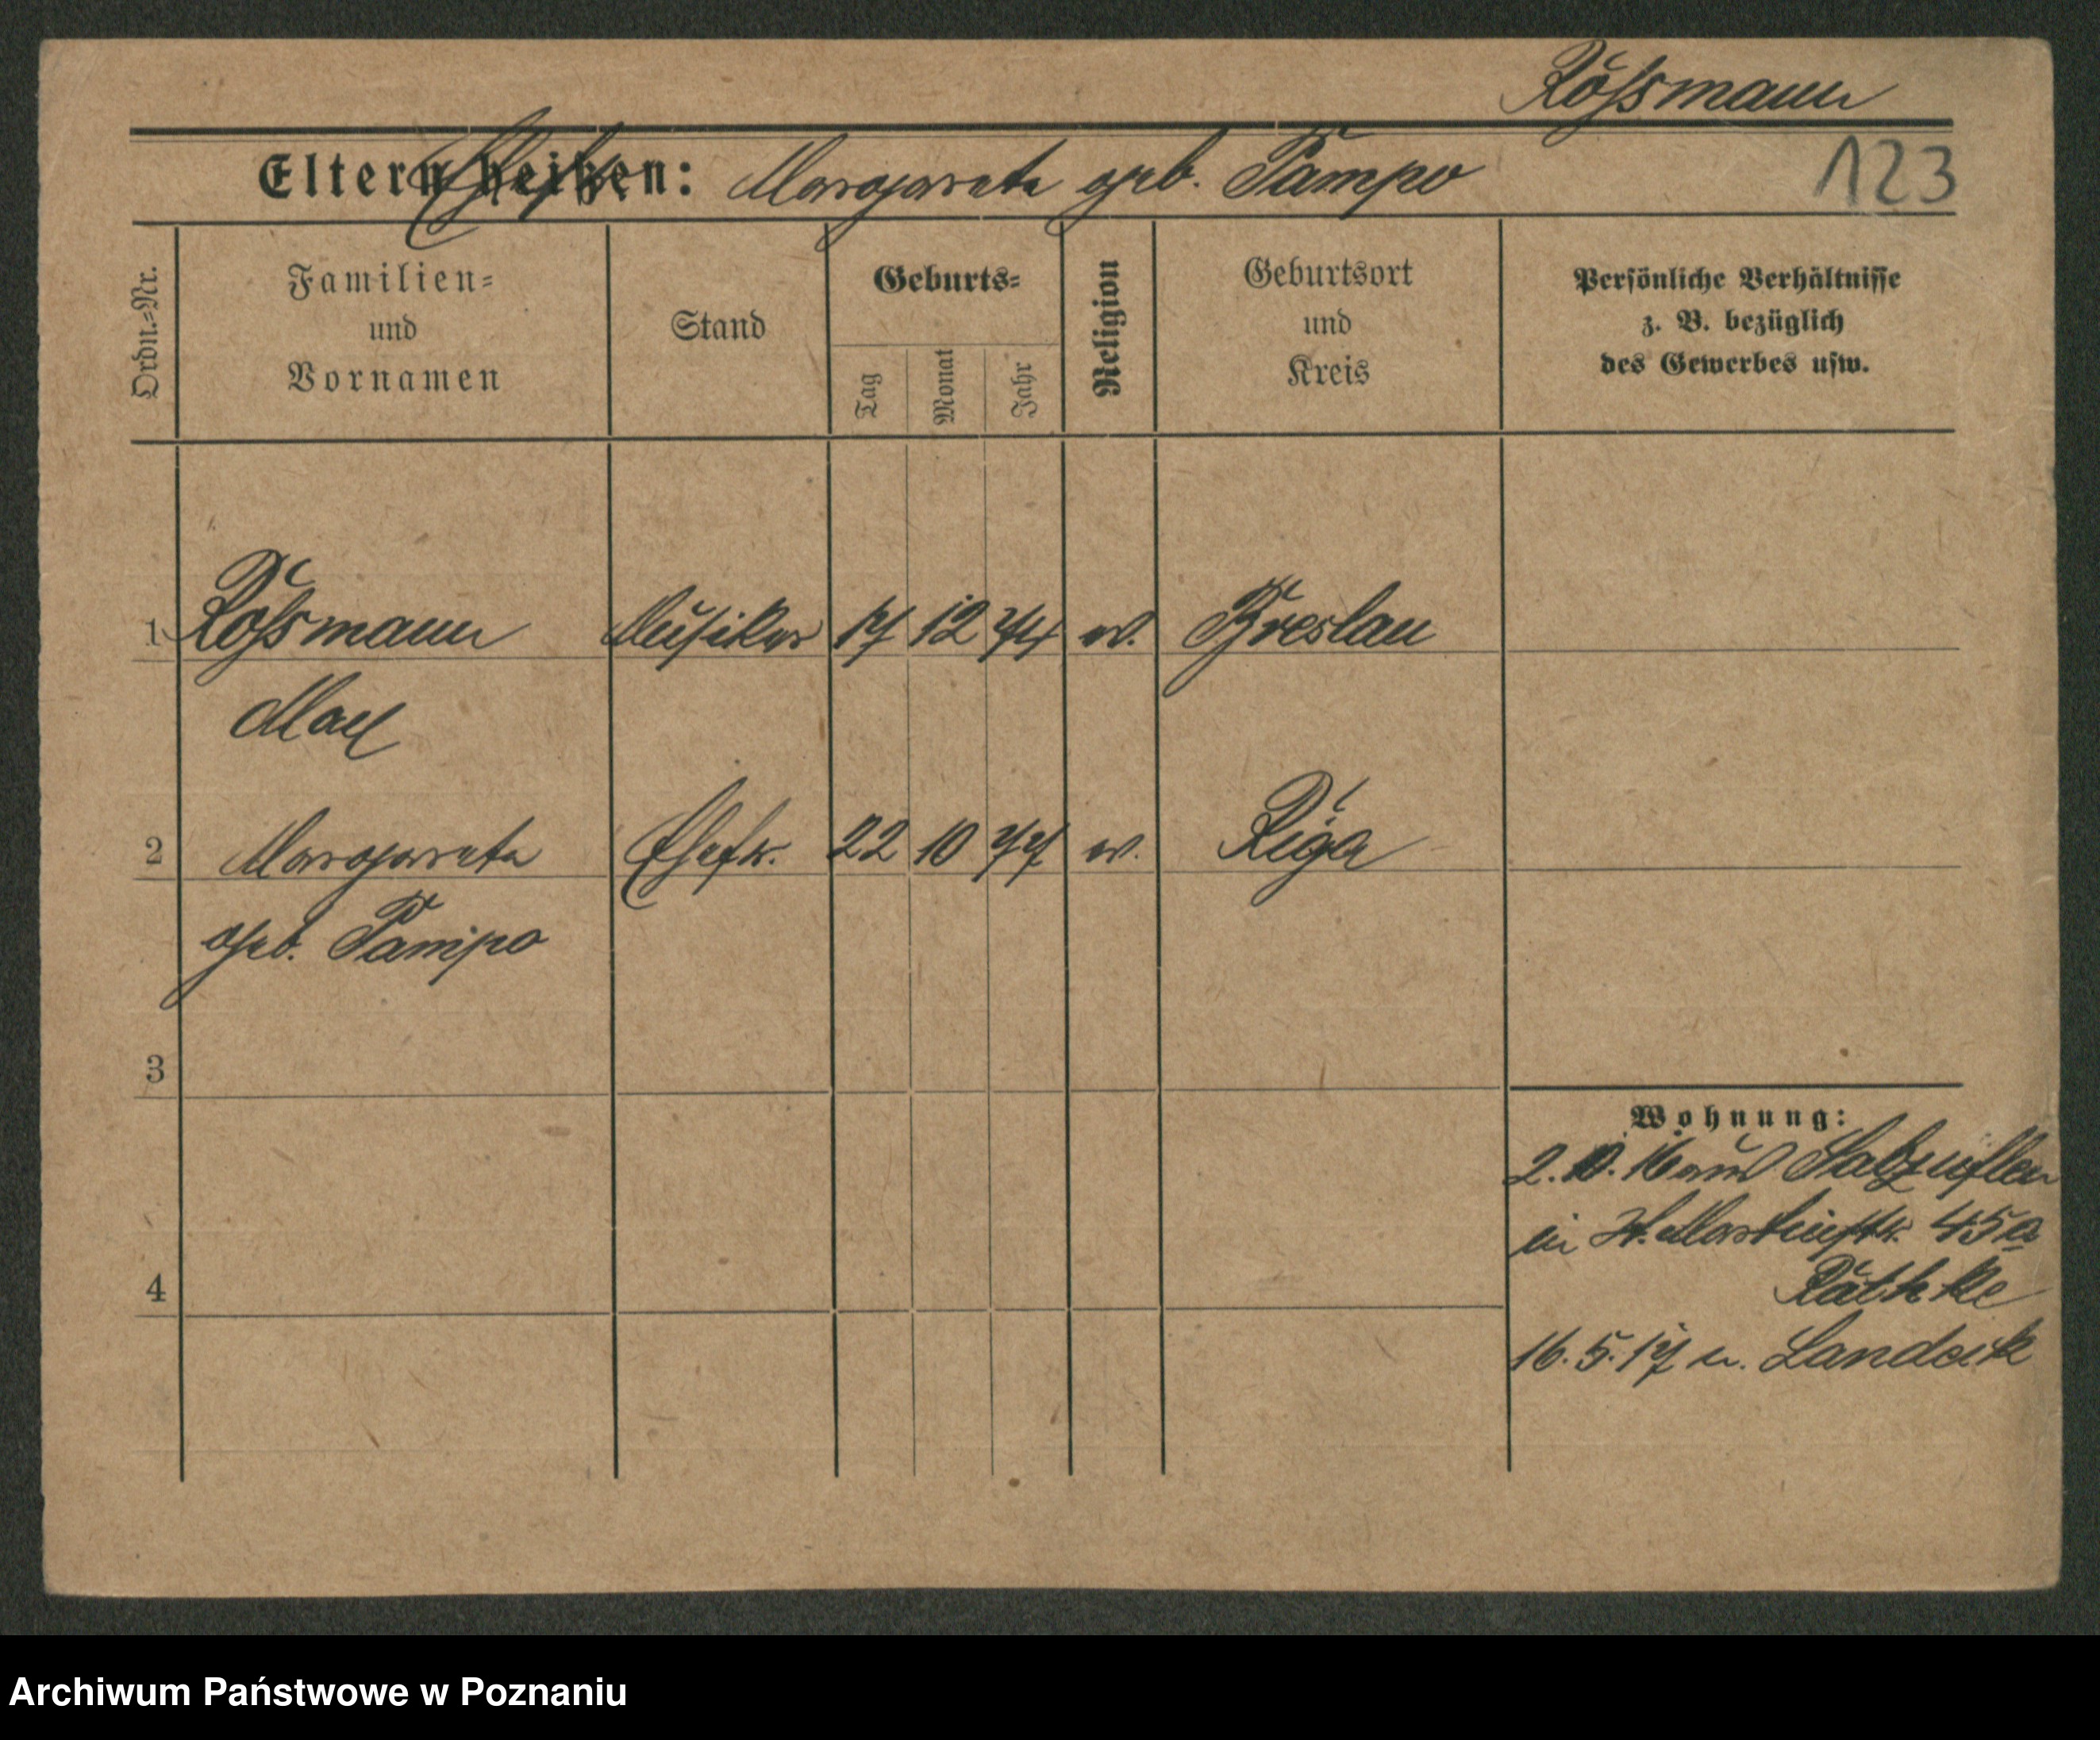 Rössmann
Eltern heißen: Ehefr. Margarete geb. Pampo
123
Ordn.-Nr.
Familien=
und
Vornamen
Stand
Geburts=
Tag
Monat
Jahr
Religion
Geburtsort
und
Kreis
Persönliche Verhältnisse
z. B. bezüglich
des Gewerbes usw.
1 Rossmann Musiker 17 12 74 ev. Breslau
Max
2 Margarete Ehefr. 22 10 77 ev. Riga
geb. Pampo
3
4
Wohnung:
2. 10. 16 aus Salzuflen
in St. Martinstr. 45a
Räthke
16. 5. 17 n. Landeck
Archiwum Państwowe w Poznaniu